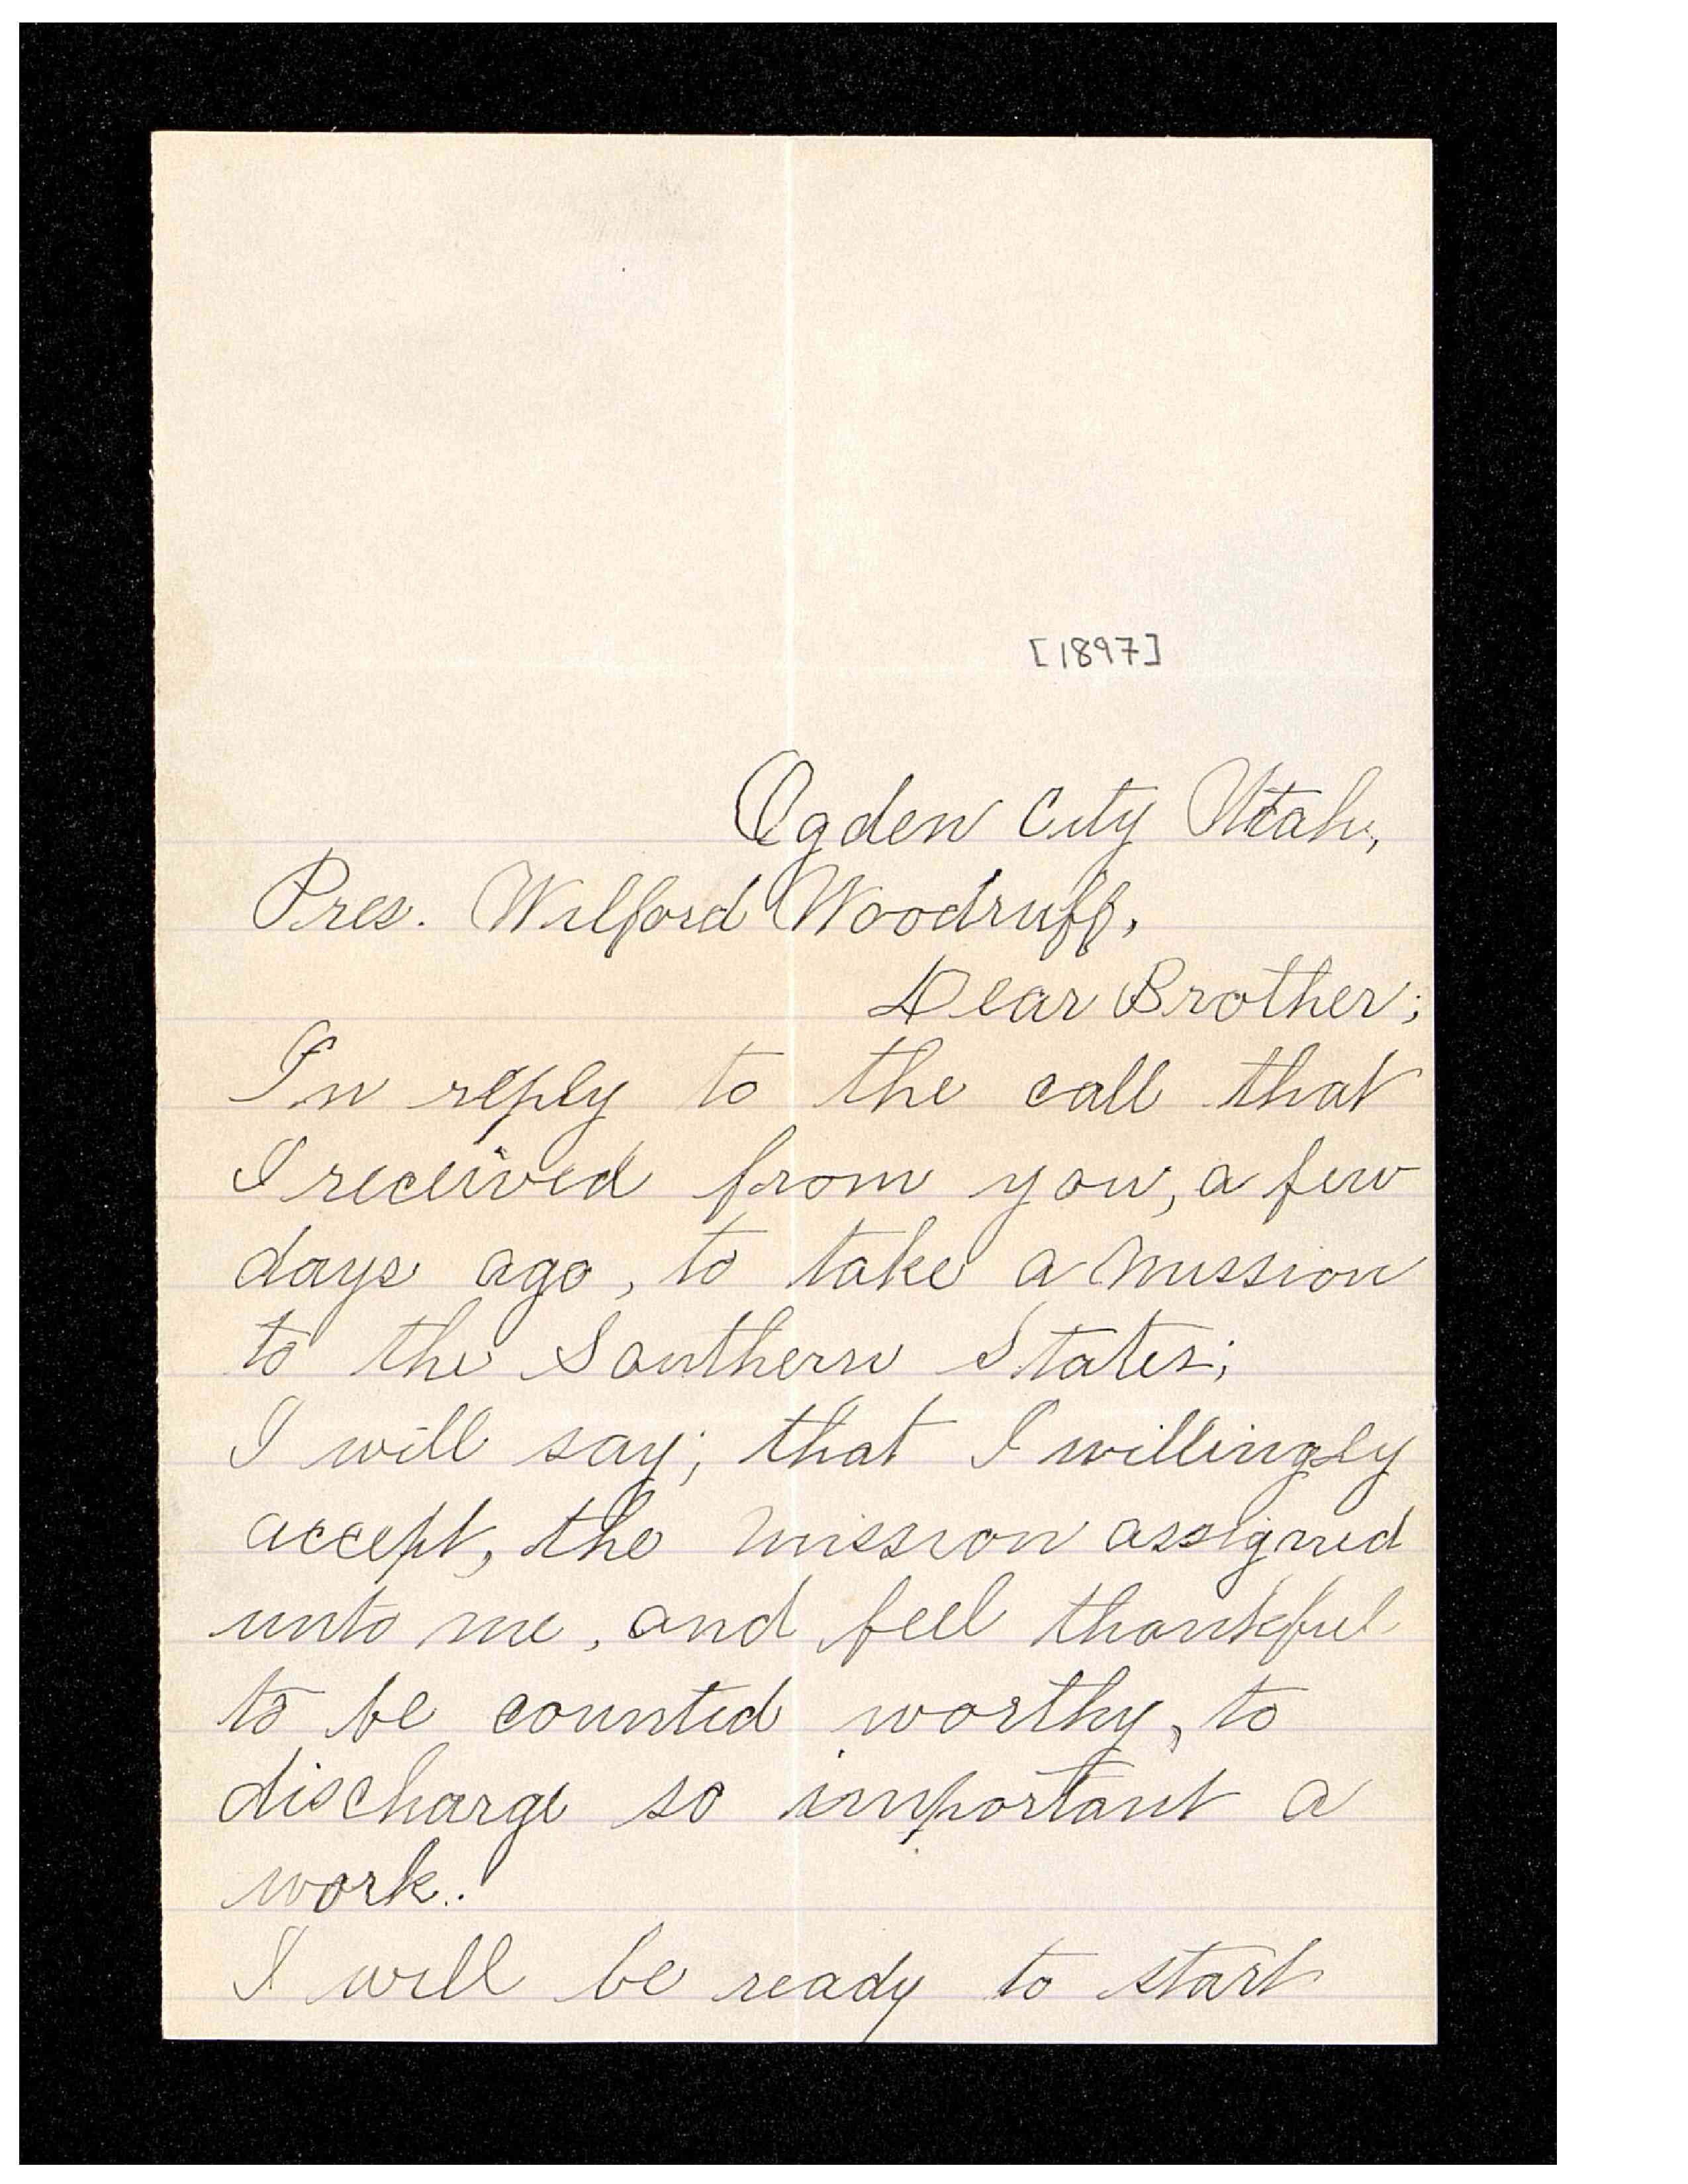 [1897]
Ogden City Utah,
Pres. Wilford Woodruff,
Dear Brother;
In reply to the call that
I received from you, a few
days ago, to take a mission
to the Southern States;
I will say; that I willingly
accept, the mission assigned
unto me, and feel thankful
to be counted worthy, to
discharge so important a
work.
I will be ready to start